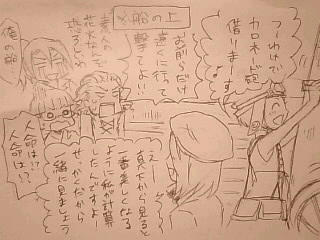 つーわけで
カロネード砲
借ります
※船の上
お前らだけ
遠くに行て
撃てよ!!
素人の
花火なんて
恐ろしいわ
俺の船
人命は!?
人命は!?
えー
見た方から見ると
一番美しくなる
ように私が計算
したんですよー
せっかくだから
一緒に見ましょう